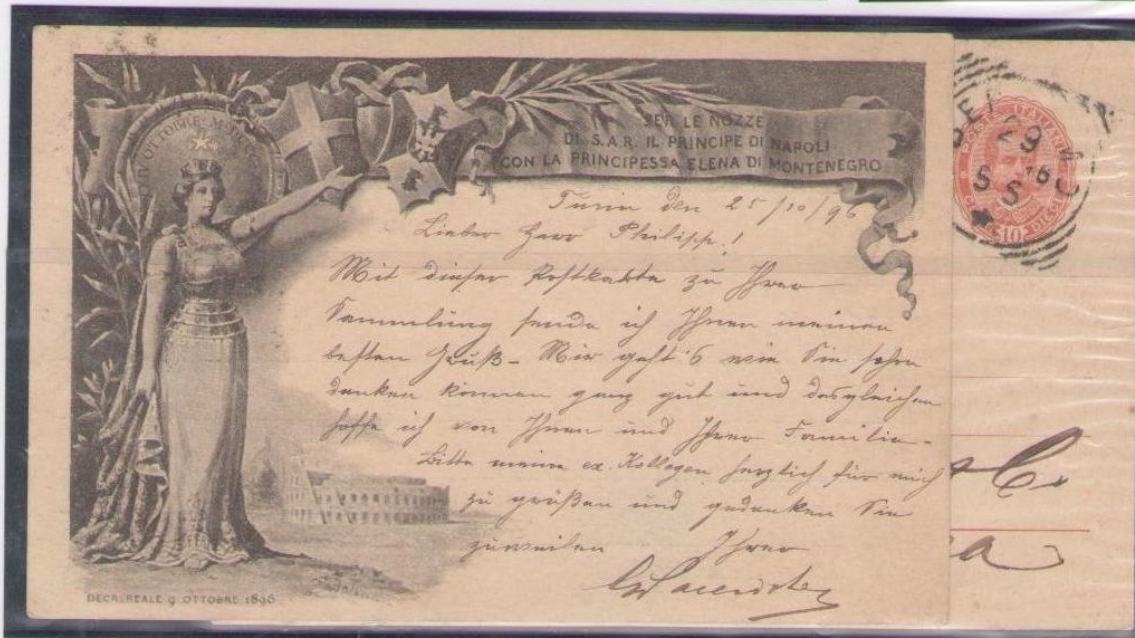 PER LE NOZZE
DI S.A.R. IL PRINCIPE DI NAPOLI
CON LA PRINCIPESSA ELENA DI MONTENEGRO
OTTOBRE
Turin den 25/10/96
Lieber Herr Philipp!
Mit dieser Postkarte zu Ihrer
Sammlung sende ich Ihnen meinen
besten Gruß- Mir geht's wie Sie sehen
denken können ganz gut und desgleichen
hoffe ich von Ihnen und Ihrer Familie-
Bitte meine ex. Kollegen herzlich für mich
zu grüßen und gedenken Sie
zuweilen Ihres
DECR. REALE 9 OTTOBRE 1896
ITALIANE
10
DIECI
29
S S